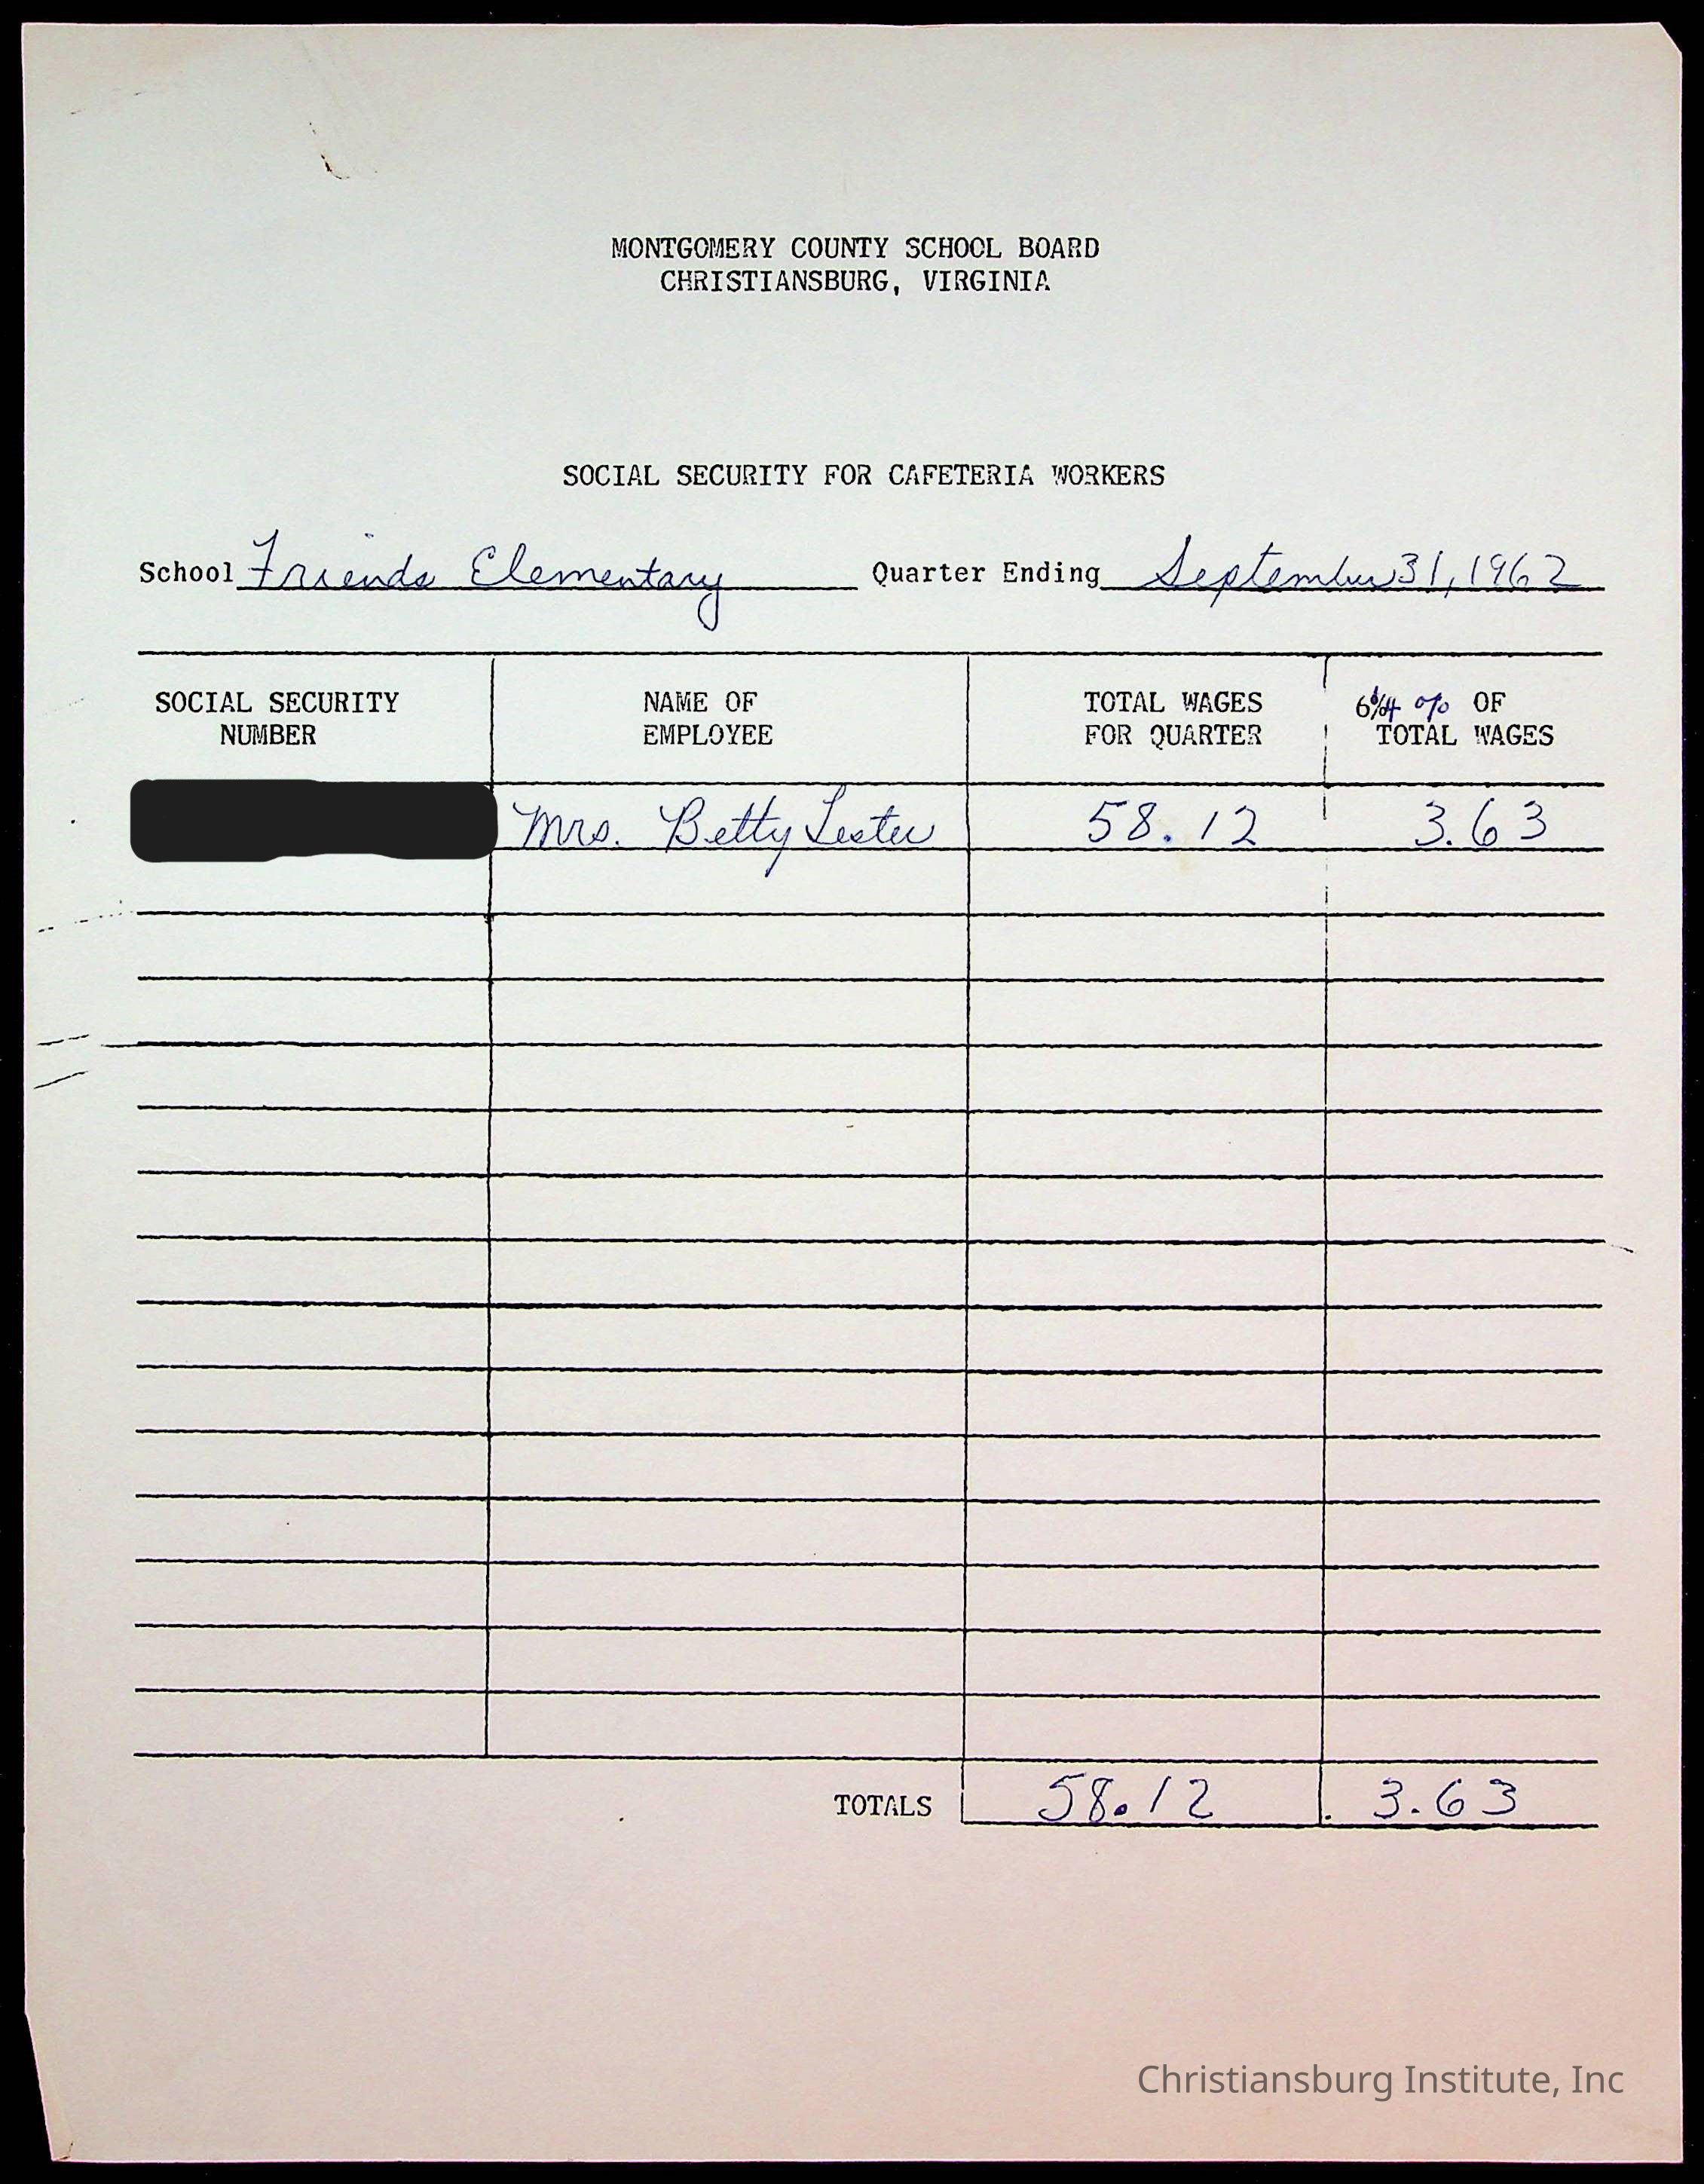 MONTGOMERY COUNTY SCHOOL BOARD
CHRISTIANSBURG, VIRGINIA
SOCIAL SECURITY FOR CAFETERIA WORKERS
School Friends Elementary Quarter Ending September 31, 1962
SOCIAL SECURITY NAME OF TOTAL WAGES % OF
NUMBER EMPLOYEE FOR QUARTER TOTAL WAGES
Mrs. Betty Lester 58.12 3.63
TOTALS 58.12 3.63
Christiansburg Institute, Inc